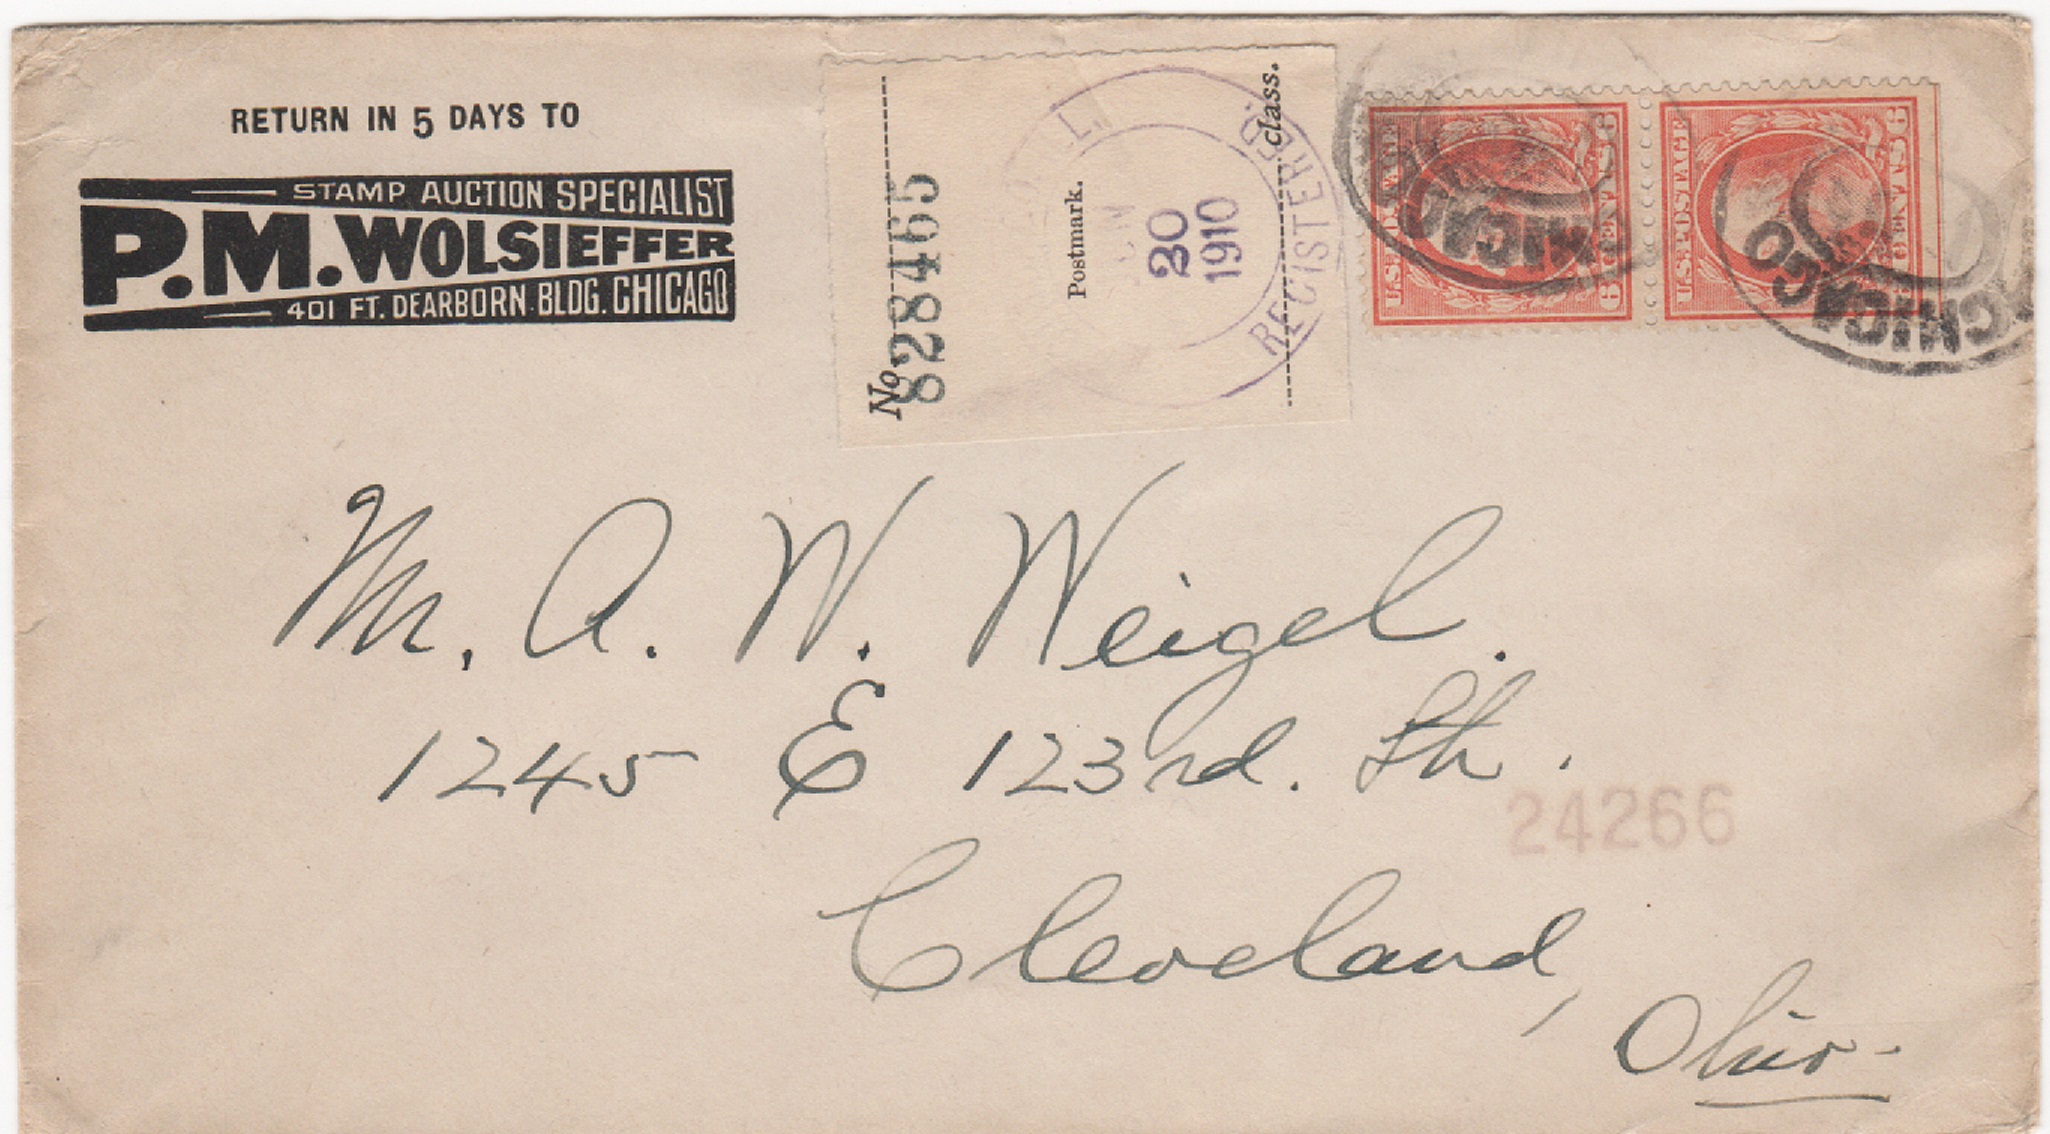 RETURN IN 5 DAYS TO
STAMP AUCTION SPECIALIST
P.M. WOLSIEFFER
401 FT. DEARBORN BLDG. CHICAGO
No. 828465
Postmark.
20
1910
REGISTERED.
class.
U.S. POSTAGE
6 CENTS 6
CHICAGO
U.S. POSTAGE
6 CENTS 6
CHICAGO
CHICAGO
Mr. A. W. Weigel.
1245 E 123rd. St.
24266
Cleveland,
Ohio-